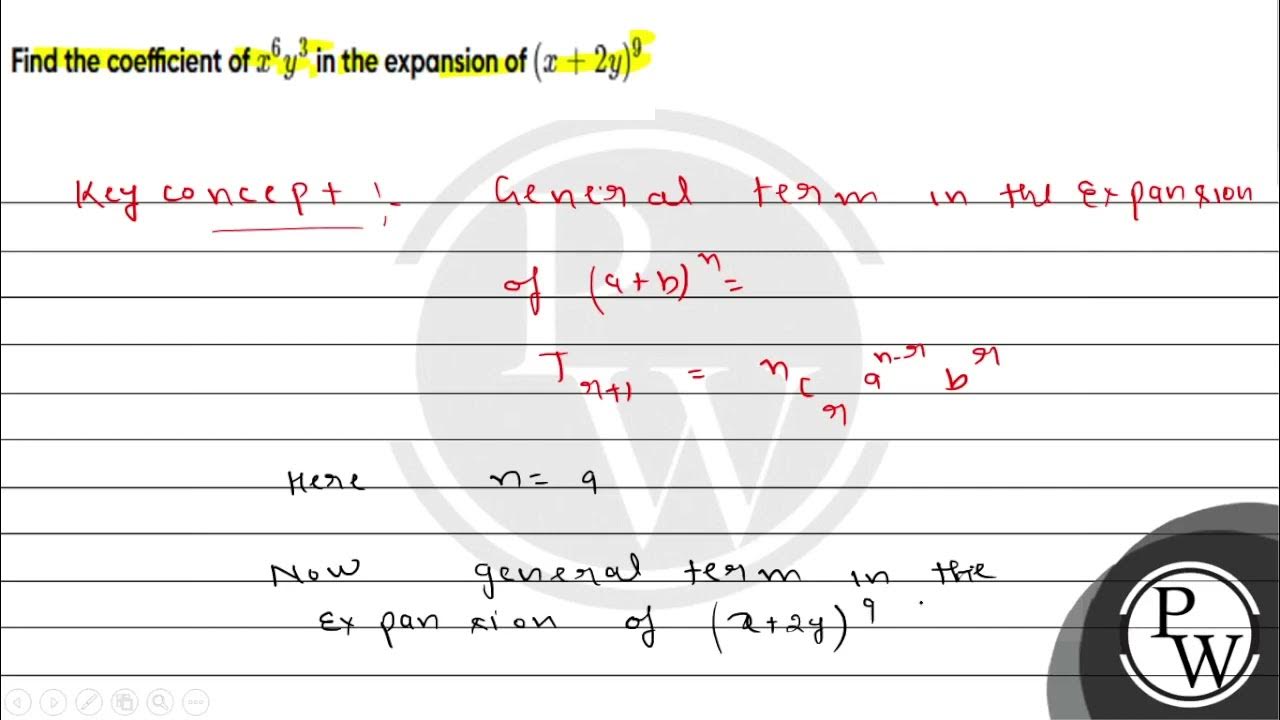 Find the coefficient of x⁶y³ in the expansion of (x + 2y)⁹
Key concept :- General term in the Expansion
of (a+b)ⁿ =
T_{r+1} = ⁿC_r a^{n-r} b^r
Here n = 9
Now general term in the
Expansion of (x+2y)⁹.
P
W
PW